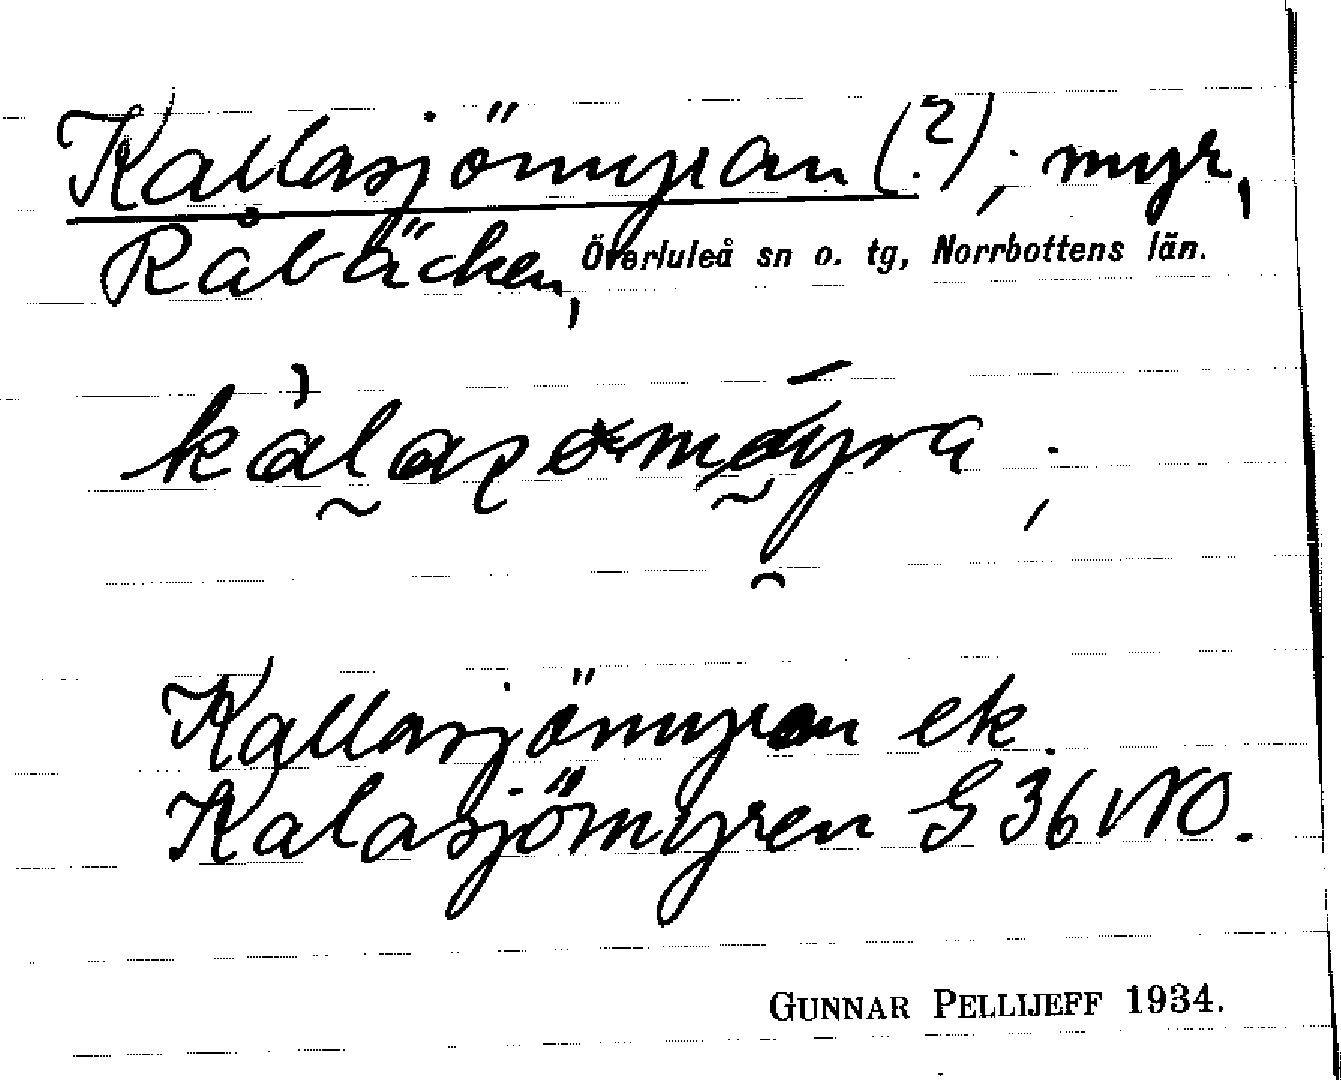 Kallasjömyran (?); myr,
Råbäcken, Överluleå sn o. tg, Norrbottens län.
Kallasjömyran ek.
Kalasjömyren G 36 NO.
GUNNAR PELLIJEFF 1934.